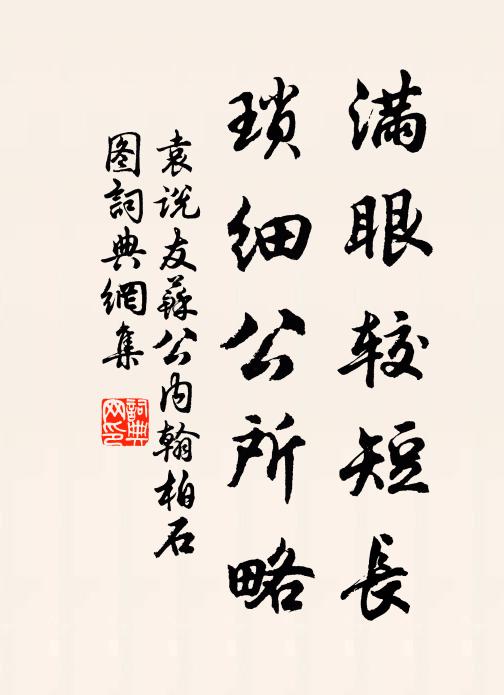 满眼较短長
瑣细公所略
袁说友蘇公内翰柏石
图詞典網集
詞典网印